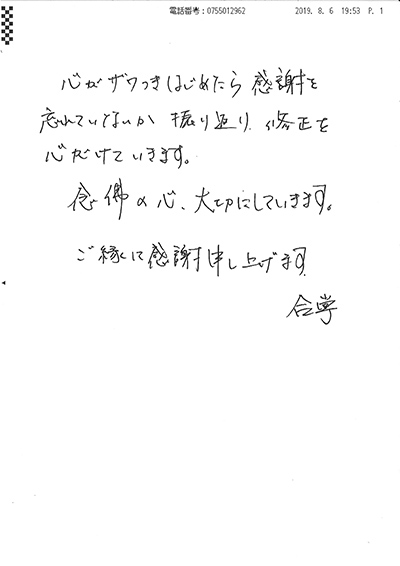 電話番号：0755012962 2019. 8. 6 19:53 P. 1
心がザワつきはじめたら感謝を
忘れていないか 振り返り、修正を
心がけていきます。
念佛の心、大切にしていきます。
ご縁に感謝申し上げます
合掌